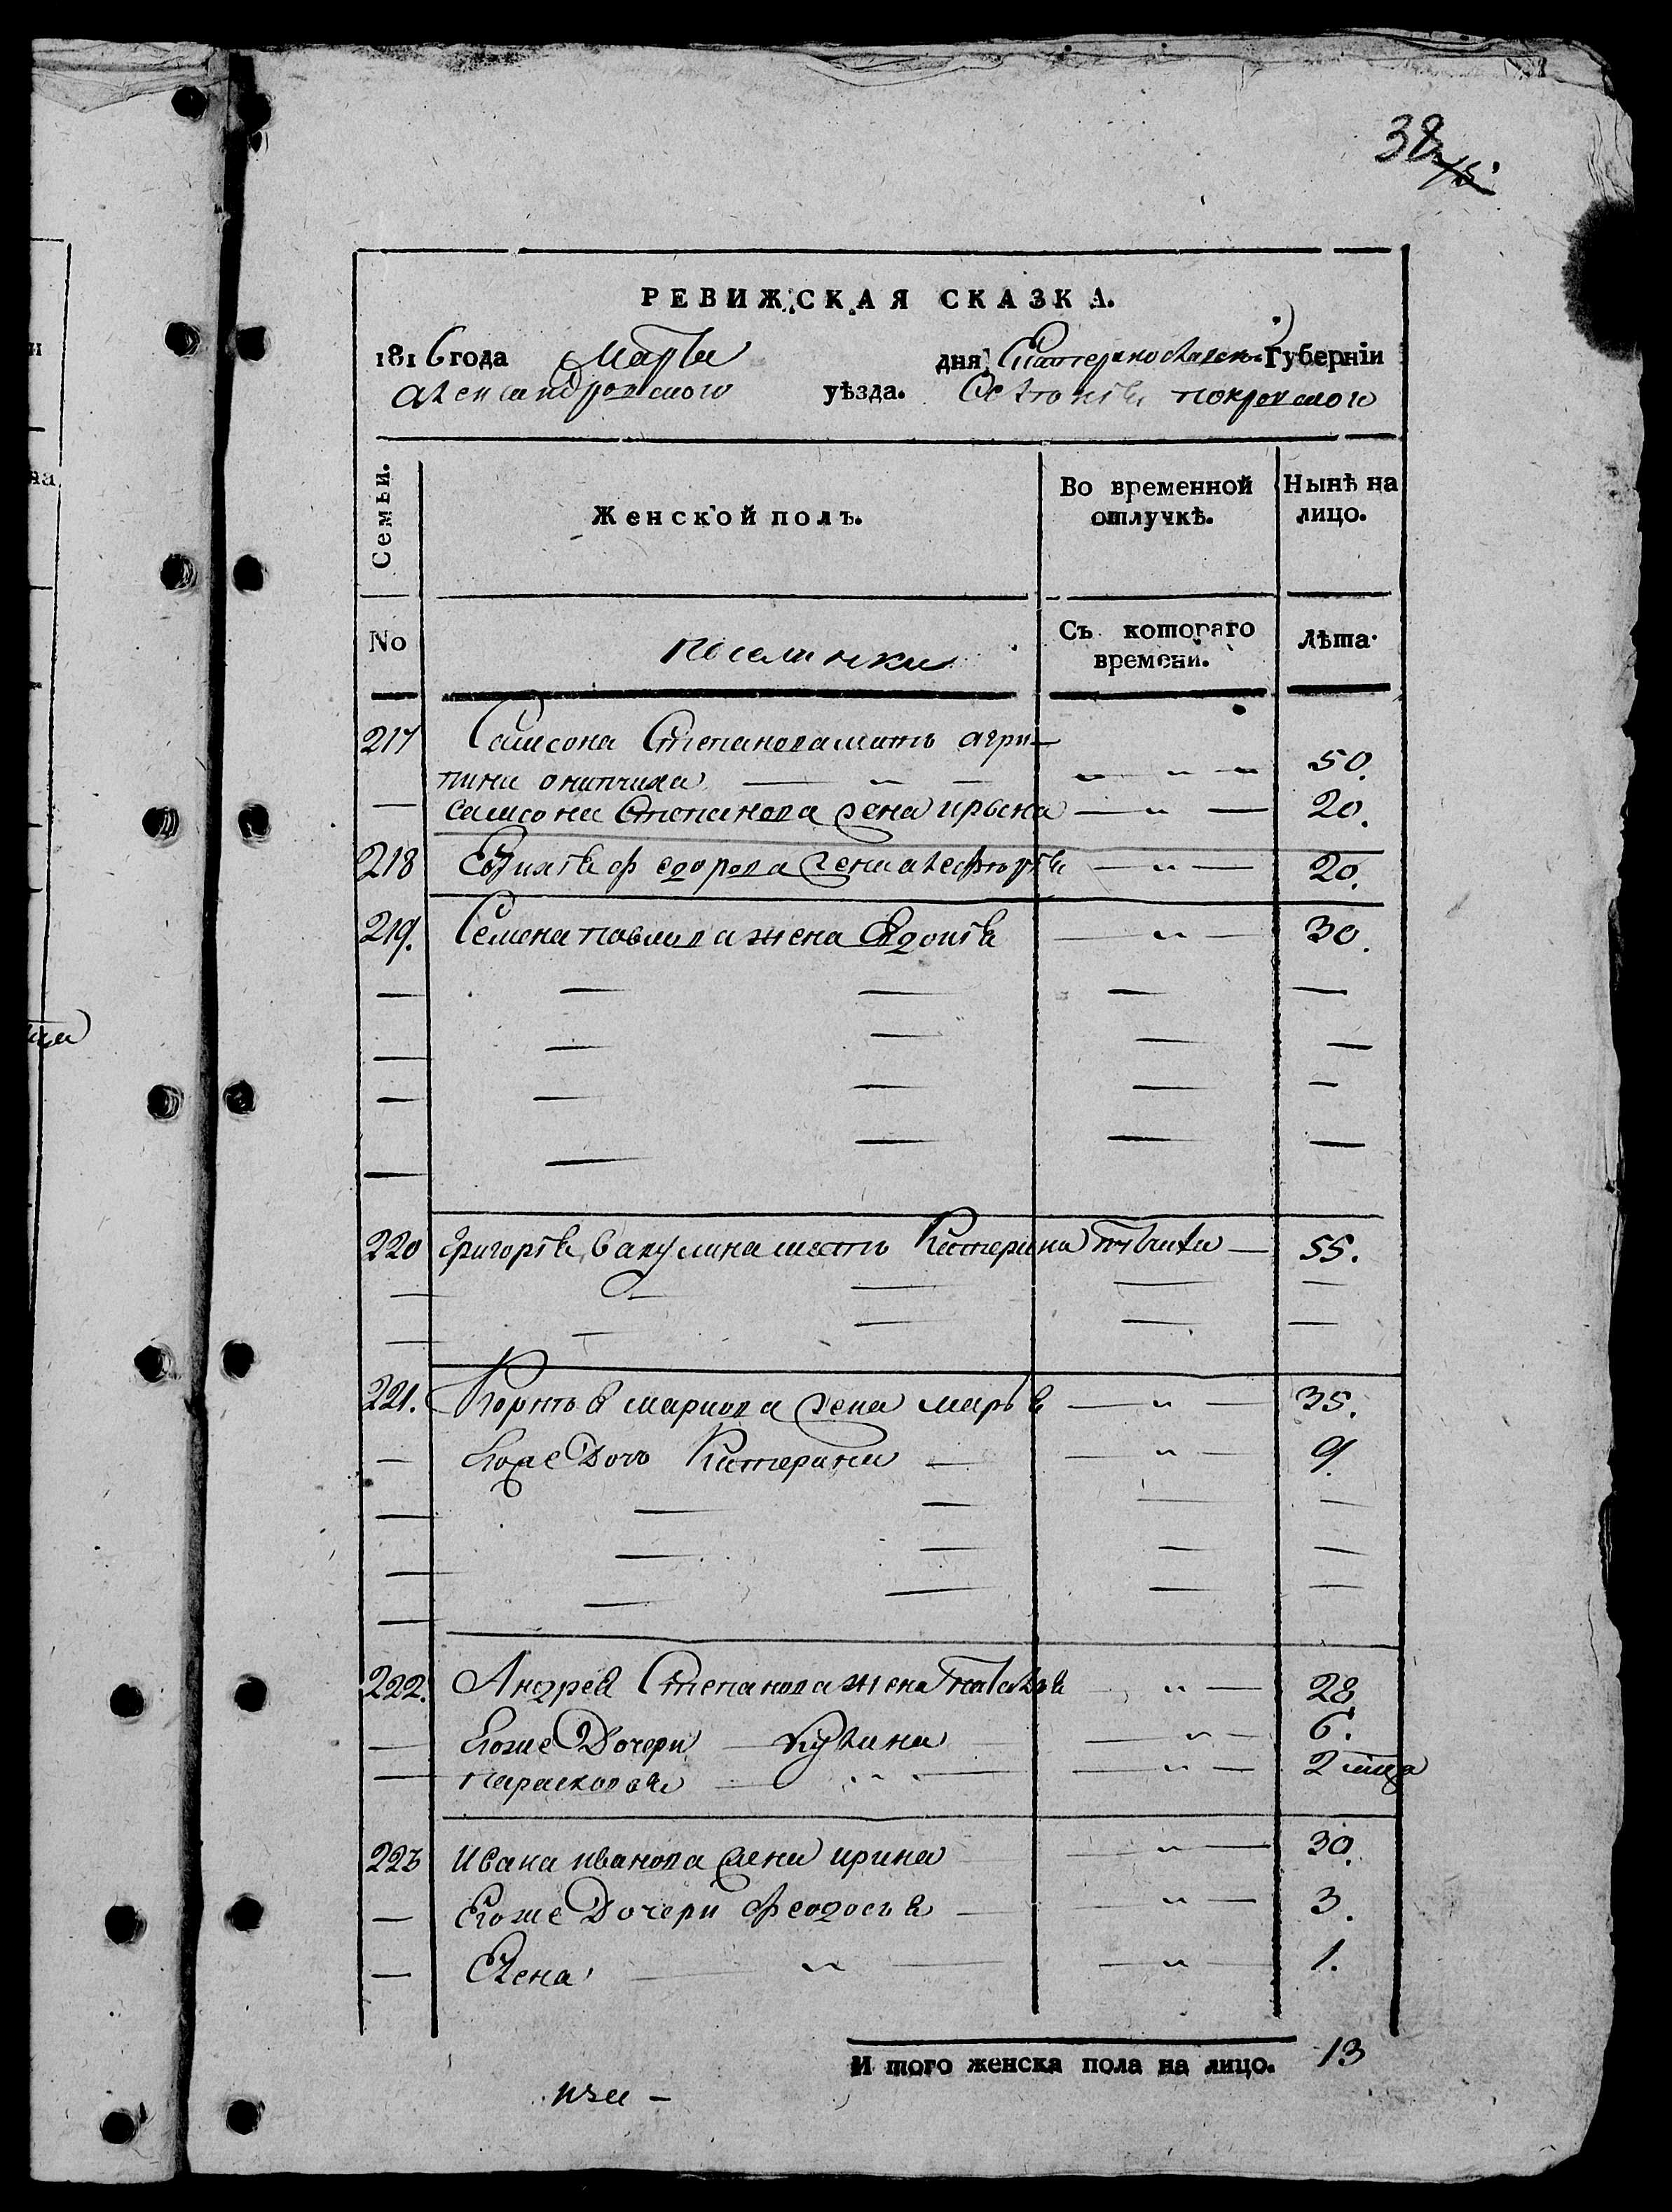 38
РЕВИЖСКАЯ СКАЗКА.
1816 года Марта дня Екатеринославской Губерніи
александровского уѣзда. Селенія покровского
Семьи.
Женской полъ.
Во временной отлучкѣ.
Нынѣ на лицо.
No
Съ котораго времени.
Лѣта.
217 Самсона Степанова мать агри-
пина 50.
— самсона Степанова жена ирына — " — 20.
218 федорова жена — " — 20.
219. Семена павлова жена Евдокія — " — 30.
220 григорія вакулина мать Катерина 55.
221. маркова жена марья — " — 35.
— Егоже Дочь Катерина — — " — 9.
222. Андрея Степанова жена Наталья — " — 28
— Егоже Дочери — " — 6.
— парасковья — " — — " — 2 мца
223 ивана иванова жена ирина — " — 30.
— Егоже Дочери феодосья — — " — 3.
— Елена — " — — " — 1.
И того женска пола на лицо. 13